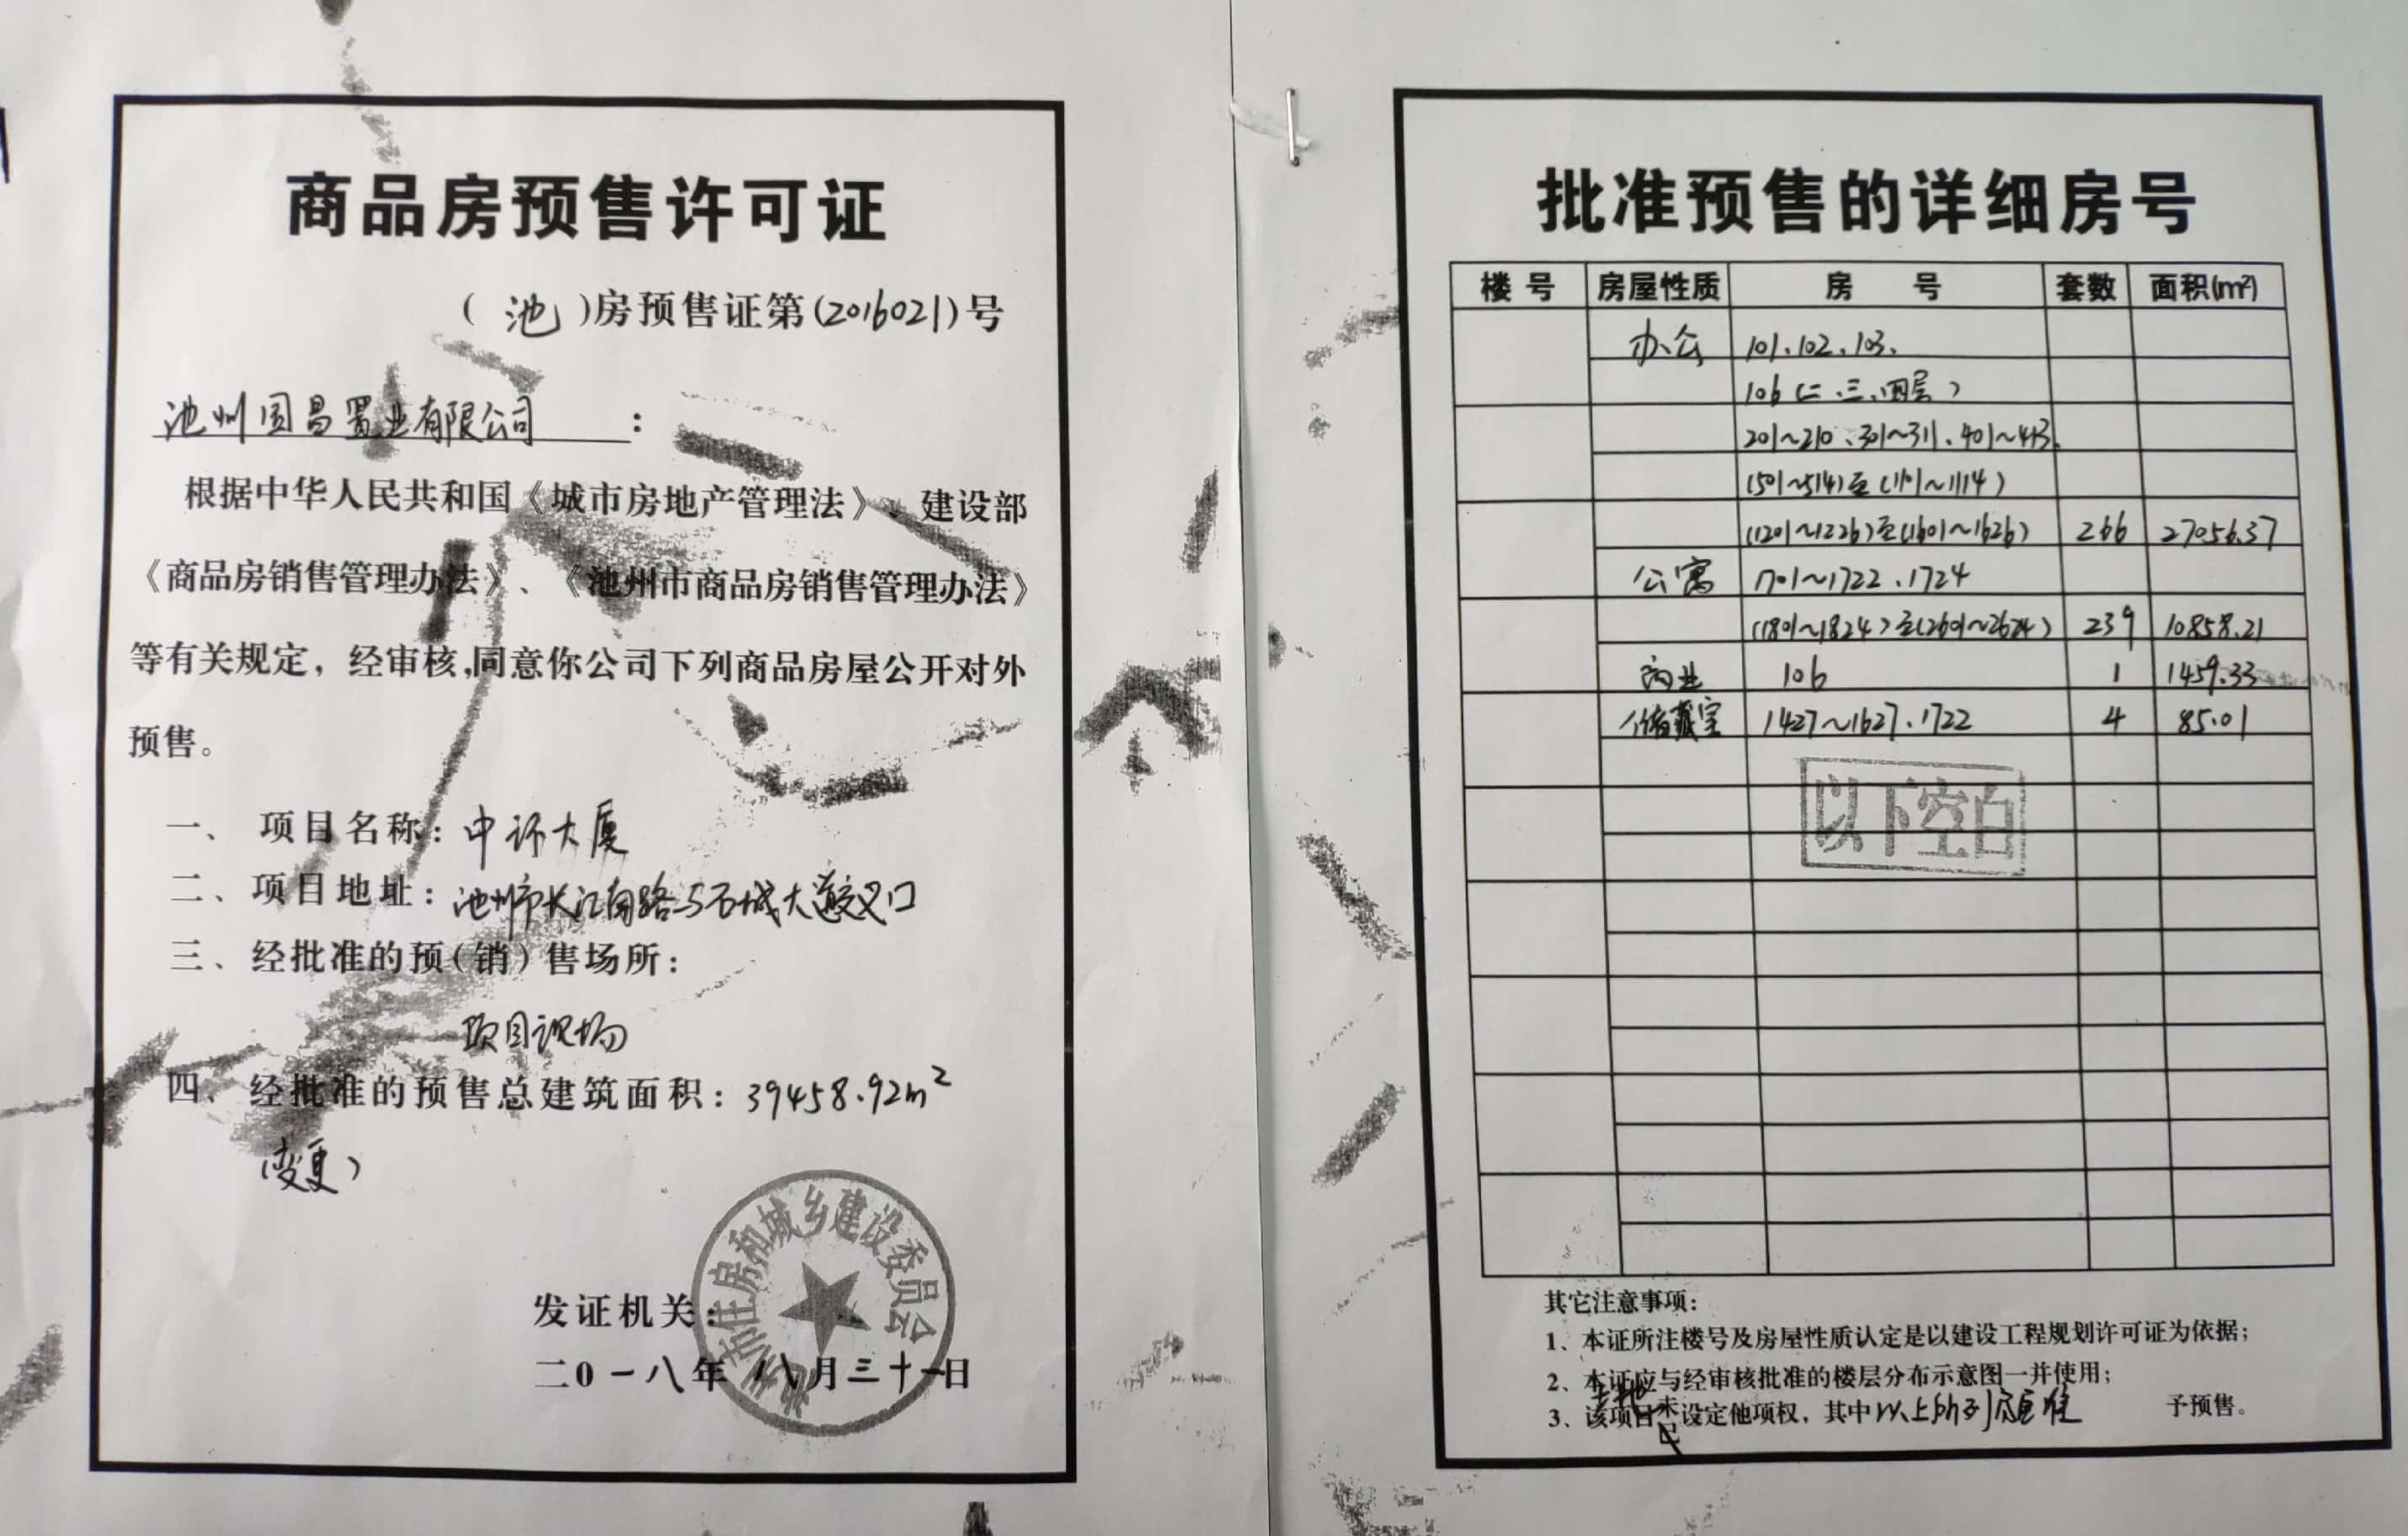 商品房预售许可证
(池)房预售证第(2016021)号
池州国昌置业有限公司：
根据中华人民共和国《城市房地产管理法》、建设部
《商品房销售管理办法》、《池州市商品房销售管理办法》
等有关规定，经审核，同意你公司下列商品房屋公开对外
预售。
一、项目名称：中环大厦
二、项目地址：池州市长江南路与石城大道交叉口
三、经批准的预(销)售场所：
项目现场
四、经批准的预售总建筑面积：39458.92m²
(变更)
池州市住房和城乡建设委员会
发证机关：
二0一八年 八月三十一日
批准预售的详细房号
楼号 房屋性质 房号 套数 面积(m²)
办公 101、102、103、
106(二、三、四层)
201~210、301~311、401~413、
(501~514)至(1101~1114)
(1201~1226)至(1601~1626) 266 27056.37
公寓 1701~1722、1724
(1801~1824)至(2601~2624) 239 10858.21
商业 106 1 1459.33
储藏室 1427~1627、1722 4 85.01
以下空白
其它注意事项：
1、本证所注楼号及房屋性质认定是以建设工程规划许可证为依据；
2、本证应与经审核批准的楼层分布示意图一并使用；
3、该项目土地未已设定他项权，其中以上所列房屋准予预售。